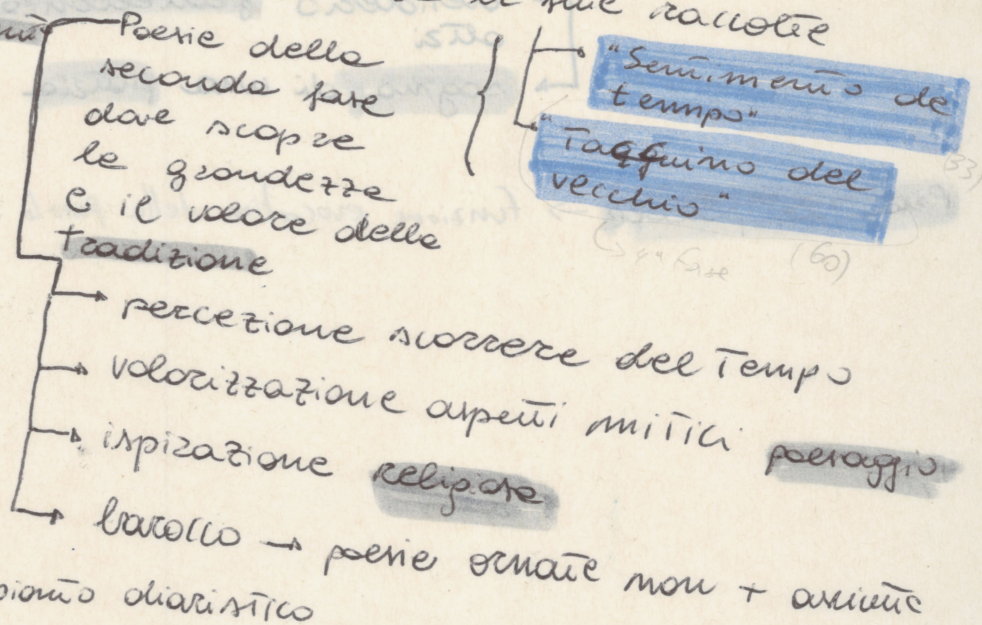 sue raccolte
Poesie della
seconda fase
dove scopre
la grandezza
e il valore della
tradizione
"Sentimento de
tempo"
"Taqquino del
vecchio"
(33)
4ª fase
(60)
percezione scorrere del Tempo
valorizzazione aspetti mitici paesaggio
ispirazione religiosa
barocco → poesie ornate non + asciutte
diaristico